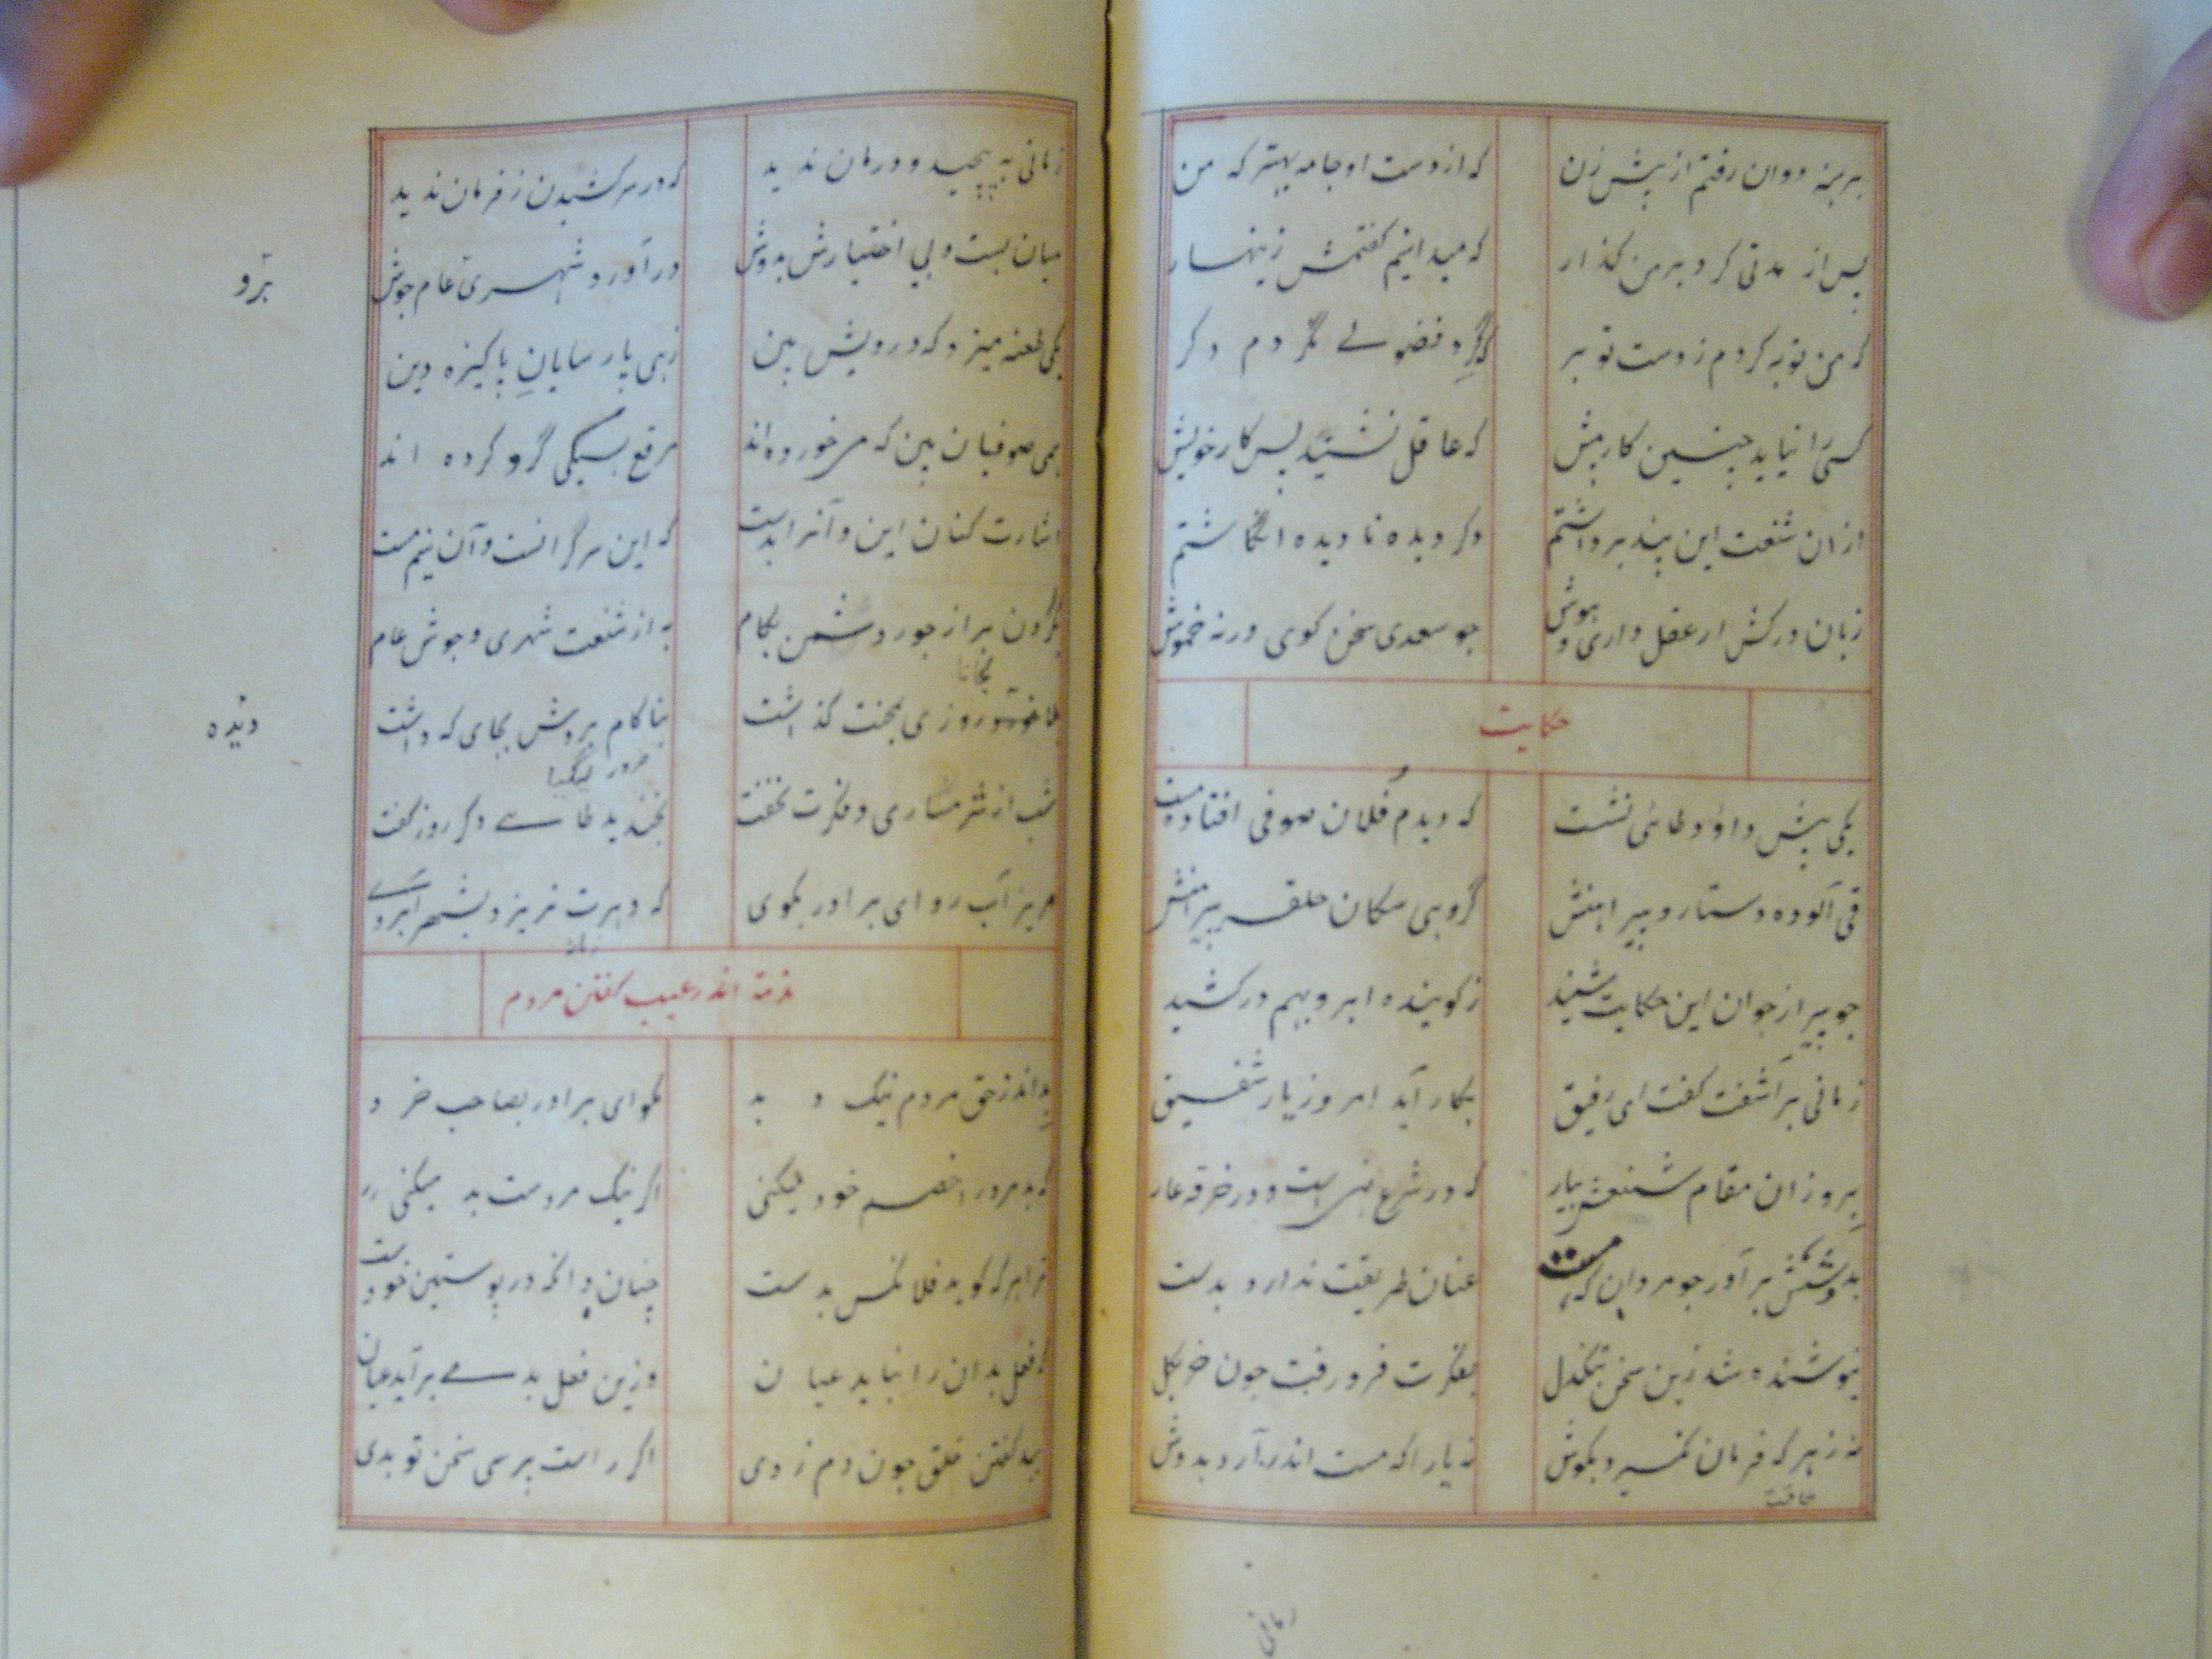 برهنه دوان رفتم از پیش زن که از دست او جامه بهتر که من
پس از مدتی کرد بر من گذار که میدانیم گفتمش زینهار
که من توبه کردم ز دست تو بر که گرد فضولے نگردم دگر
کسی را نیاید چنین کار پیش که عاقل نشیند پس کار خویش
ازان شنعت این پند برداشتم دگر دیده نادیده انگاشتم
زبان درکش ار عقل داری و هوش جو سعدی سخن کوی ورنه خموش
حکایت
یکی پیش داؤد طائی نشست که دیدم فلان صوفی افتاده مست
قی آلوده دستار و پیراهنش گروهی سکان حلقه پیرامنش
جو پیر از جوان این حکایت شنید ز کوینده ابرو بهم درکشید
زمانی برآشفت کفت ای رفیق بکار آید امروز یار شفیق
برو زان مقام شنیعش بیار که در شرع نهی است و در خرقه عار
بدوشش برآور جو مردان که مست عنان طریقت ندارد بدست
نیوشنده شد زین سخن تنکدل بفکرت فرو رفت جون خر بکل
نه زهره که فرمان نکیرد بکوش نه یارا که مست اندر آرد بدوش
زمانی
زمانی به پیچید و درمان ندید که در سرکشیدن ز فرمان ندید
میان بست و بی اختیارش بدوش درآورد و شهری عام جوش
برَو
یکی طعنه میزد که درویش بین زهی پارسایانِ پاکیزه دین
یکی صوفیان بین که می خورده اند مرقع بسیکی گرو کرده اند
اشارت کنان این و آنرا بدست که این سرگرانست و آن نیم مست
بگردن بر از جور دشمن بکام به از شنعت شهری و جوش عام
روزی بمحنت گذاشت بناکام بردش بجای که داشت
دیده
شب از شرمساری و فکرت نخفت بخندید طاے دگر روز کفت
مریز آب روای برادر بکوی که دهرت نریزد بشهر آبروے
اندر عیب کفتن مردم
بد اندر حق مردم نیک و بد مکو ای برادر بصاحب خرد
که بد مرد را خصم خود میکنی اگر نیک مردست بد میکنی
ترا هر که کوید فلان کس بدست چنان دان که در پوستین خودست
که فعل بدان را نباید عیان وزین فعل بد مے برآید عیان
ببد کفتن خلق جون دم زدی اگر راست پرسی سخن تو بدی